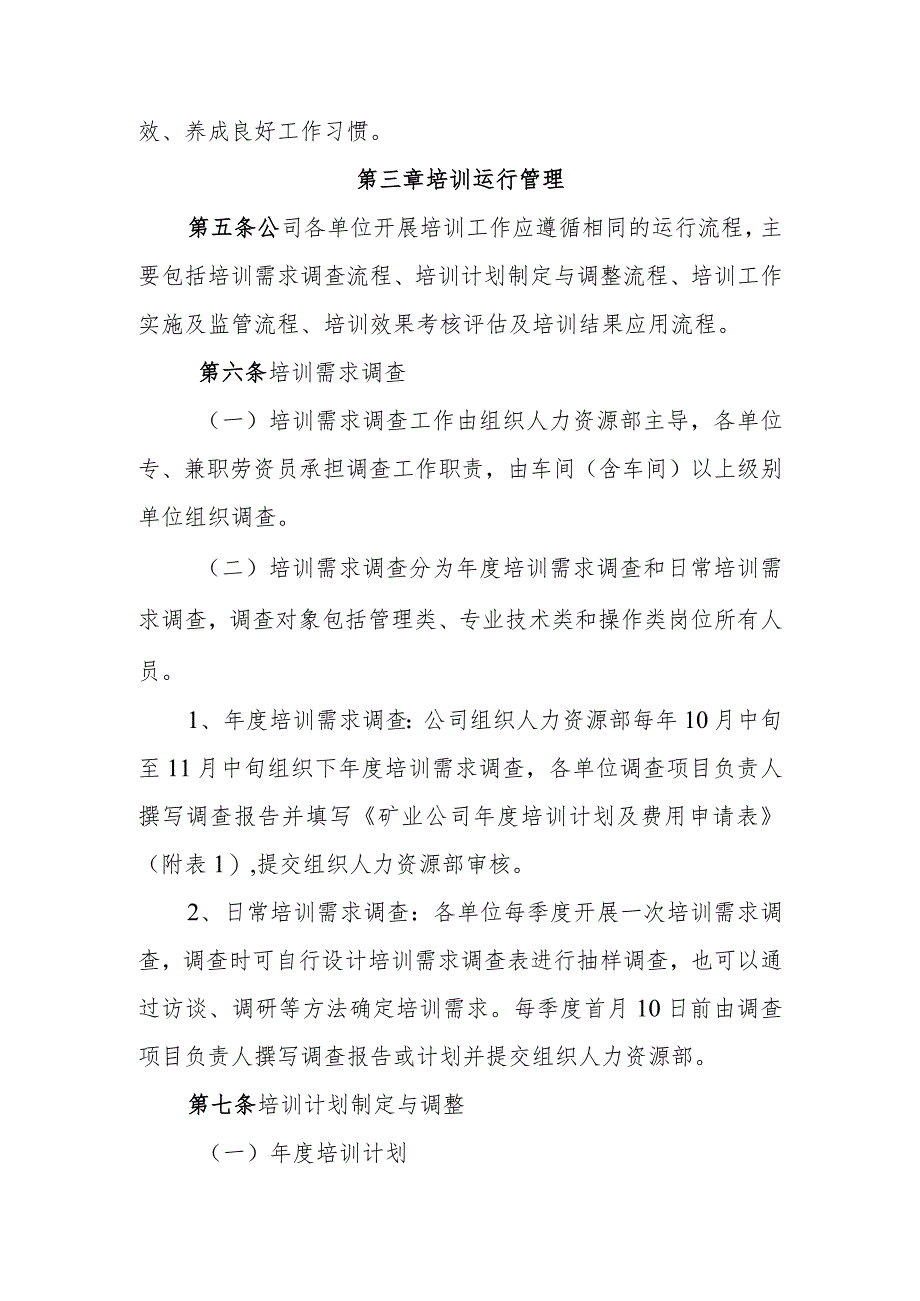 效、养成良好工作习惯。
第三章培训运行管理
第五条公司各单位开展培训工作应遵循相同的运行流程,主
要包括培训需求调查流程、培训计划制定与调整流程、培训工作
实施及监管流程、培训效果考核评估及培训结果应用流程。
第六条培训需求调查
（一）培训需求调查工作由组织人力资源部主导，各单位
专、兼职劳资员承担调查工作职责，由车间（含车间）以上级别
单位组织调查。
（二）培训需求调查分为年度培训需求调查和日常培训需
求调查，调查对象包括管理类、专业技术类和操作类岗位所有人
员。
1、年度培训需求调查：公司组织人力资源部每年10月中旬
至11月中旬组织下年度培训需求调查，各单位调查项目负责人
撰写调查报告并填写《矿业公司年度培训计划及费用申请表》
（附表1）,提交组织人力资源部审核。
2、日常培训需求调查：各单位每季度开展一次培训需求调
查，调查时可自行设计培训需求调查表进行抽样调查，也可以通
过访谈、调研等方法确定培训需求。每季度首月10日前由调查
项目负责人撰写调查报告或计划并提交组织人力资源部。
第七条培训计划制定与调整
（一）年度培训计划